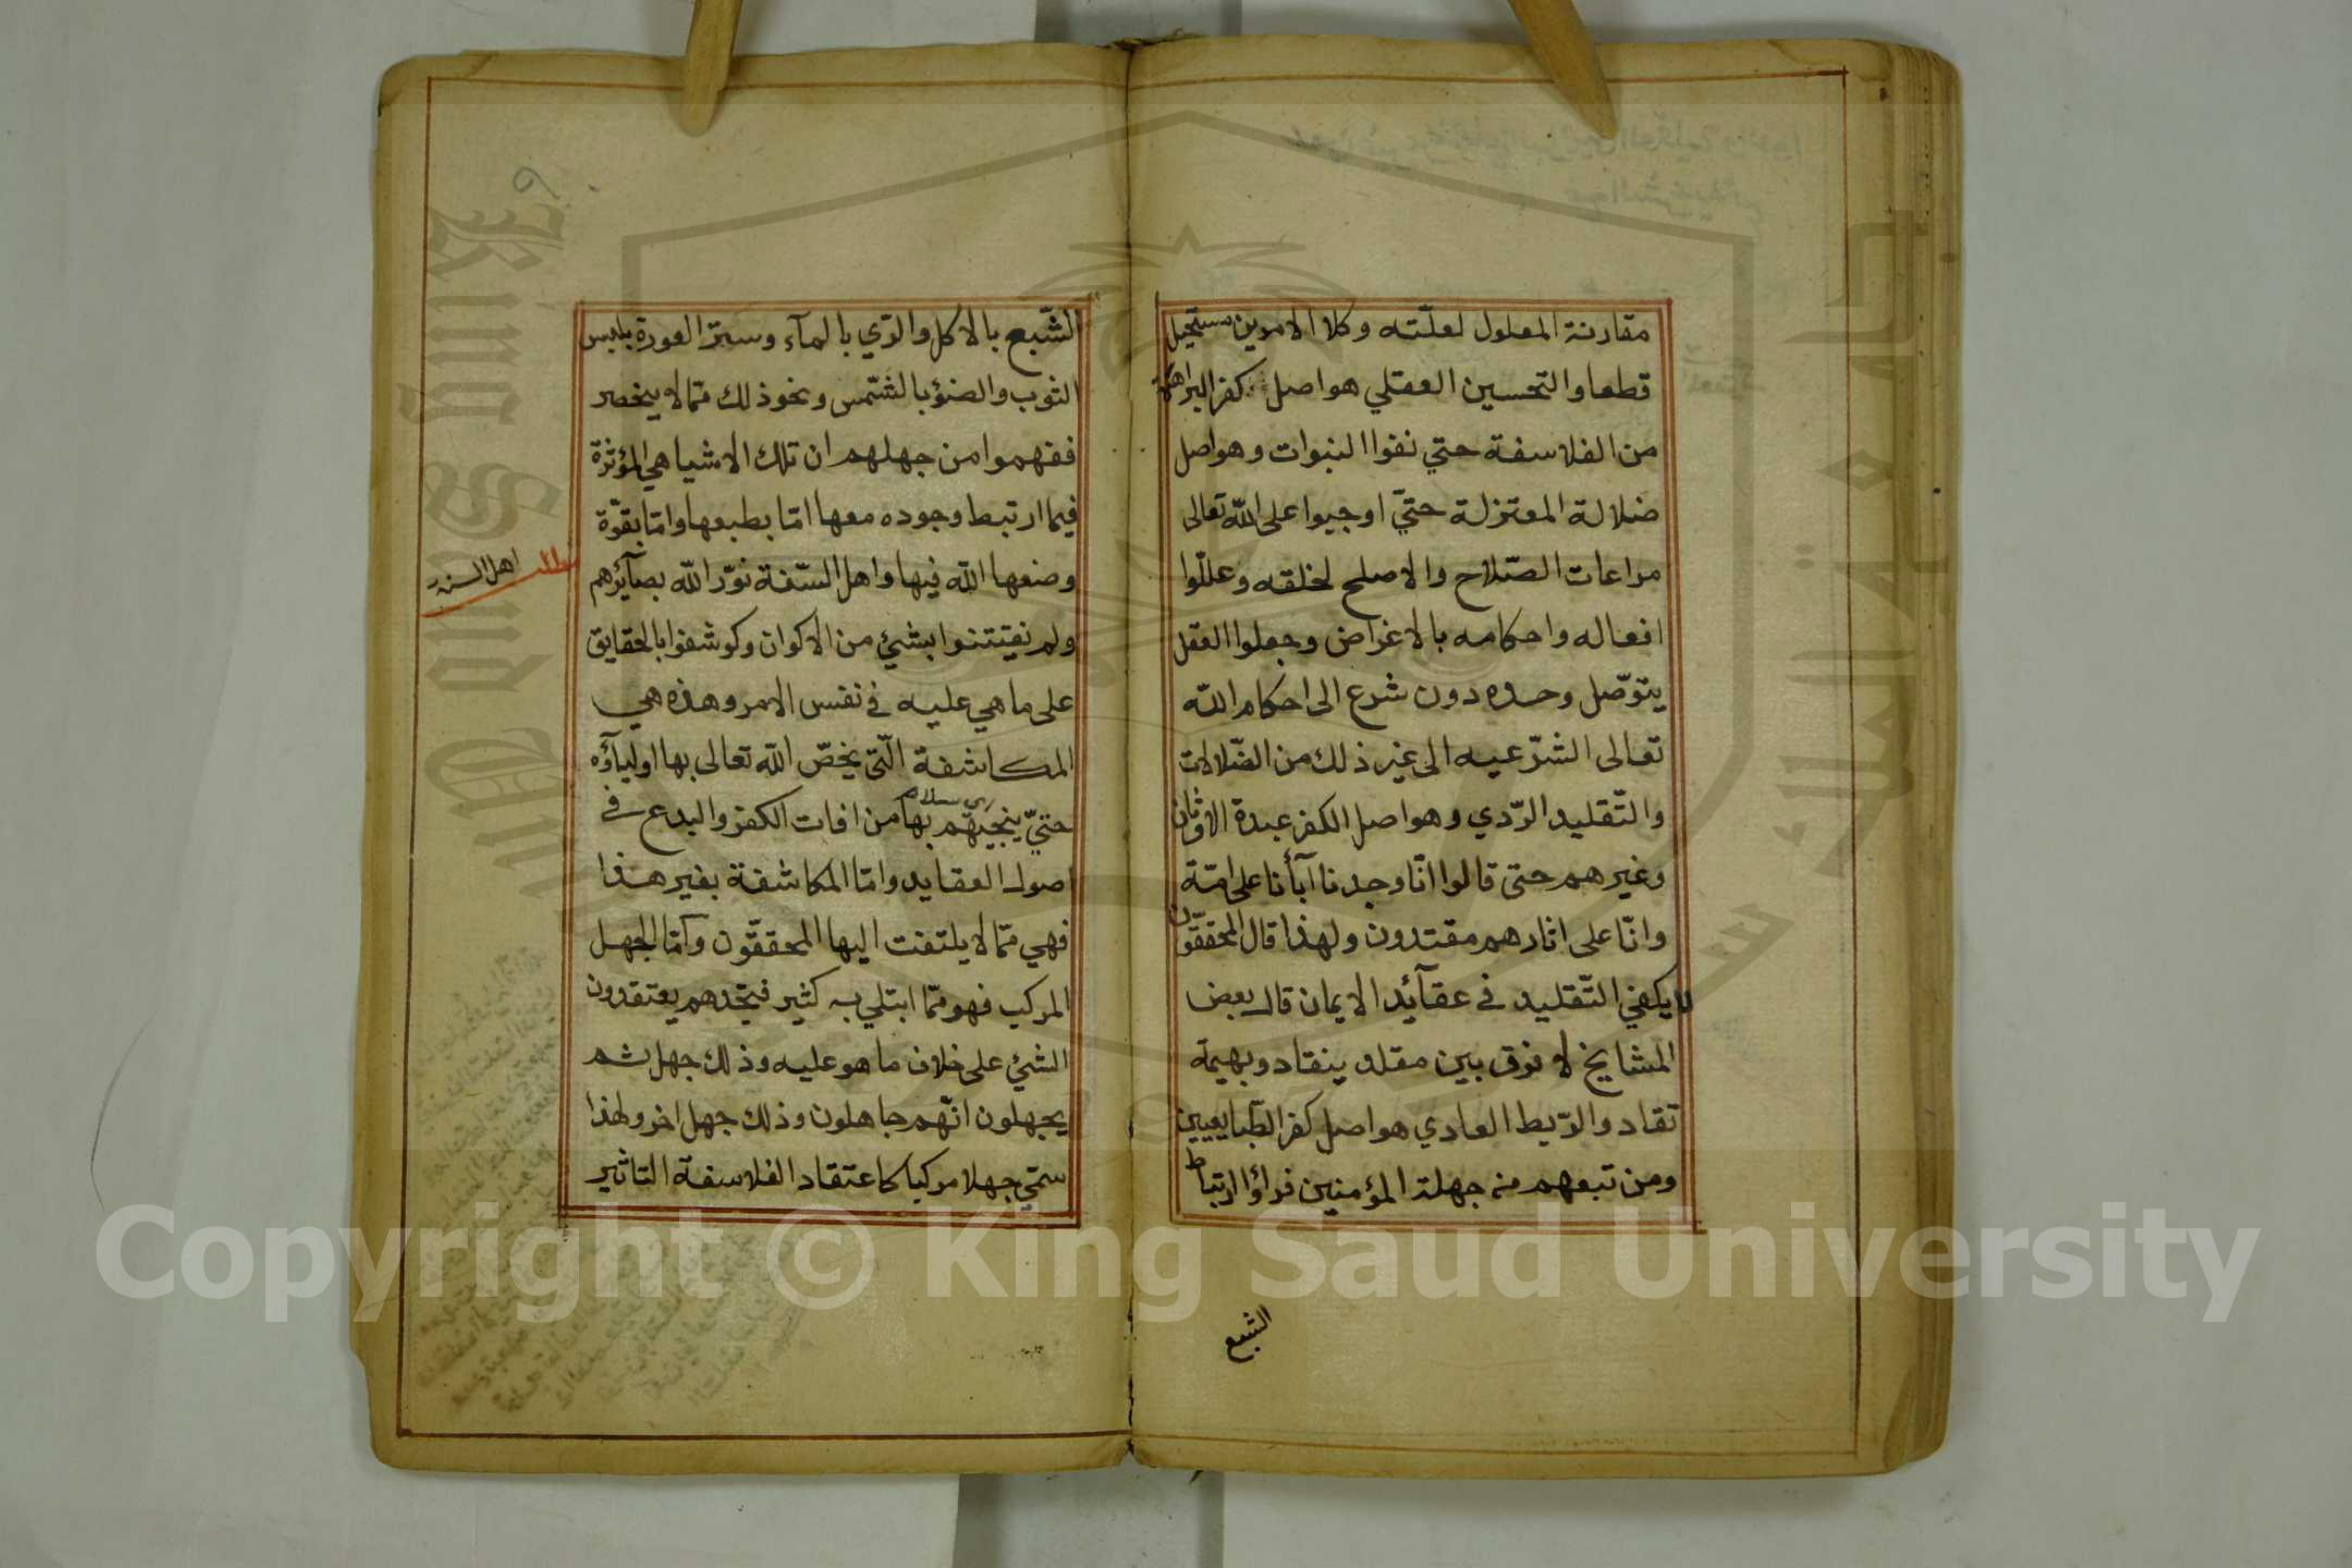 مقارنة المعلول لعلّته وكلا الامرين مستحيل
قطعا والتحسين العقلي هو اصل كفر البراهمة
من الفلاسفة حتي نفوا النبوات وهو اصل
ضلالة المعتزلة حتيّ اوجبوا على الله تعالى
مراعات الصّلاح والاصلح لخلقه وعللّوا
افعاله واحكامه بالاغراض وجعلوا العقل
يتوصّل وحده دون شرع الى احكام الله
تعالى الشرّعيه الى غير ذلك من الضّلالات
والتّقليد الرّدي وهو اصل الكفر عبدة الاوثان
وغيرهم حتى قالوا انّا وجدنا آبأنا على امّة
وانّا على اثارهم مقتدون ولهذا قال المحققّون
لا يكفي التّقليد في عقآئد الايمان قال بعض
المشايخ لا فرق بين مقلد ينقاد وبهيمة
تقاد والرّبط العادي هو اصل كفر الطّبايعيين
ومن تبعهم من جهلة المؤمنين فراؤا ارتباط
الشبع
الشّبع بالاكل والرّي بالمآء وستر العورة بلبس
الثوب والضؤ بالشّمس ونحو ذلك ممّا لا ينحصر
ففهموا من جهلهم ان تلك الاشيا هي المؤثرة
فيما ارتبط وجوده معها امّا بطبعها وامّا بقوّة
وضعها الله فيها واهل السّنة نوّر الله بصآئرهم
اهل السنة
ولم يفتتنوا بشئ من الاكوان وكوشفوا بالحقايق
على ما هي عليه في نفس الامر وهذه هي
المكاشفة الّتي يخصّ الله تعالى بها اوليآؤه
حتيّ ينجيهّم بها من افات الكفر والبدع في
اصول العقايد وامّا المكاشفة بغير هذا
فهي ممّا لا يلتفت اليها المحققّون وآمّا الجهل
المركب فهو ممّا ابتلي به كثير فتجّدهم يعتقدون
الشئ على خلاف ما هو عليه وذلك جهل ثم
يجهلون انّهم جاهلون وذلك جهل اخر ولهذا
سمّي جهلا مركبا كاعتقاد الفلاسفة التاثير
Copyright © King Saud University